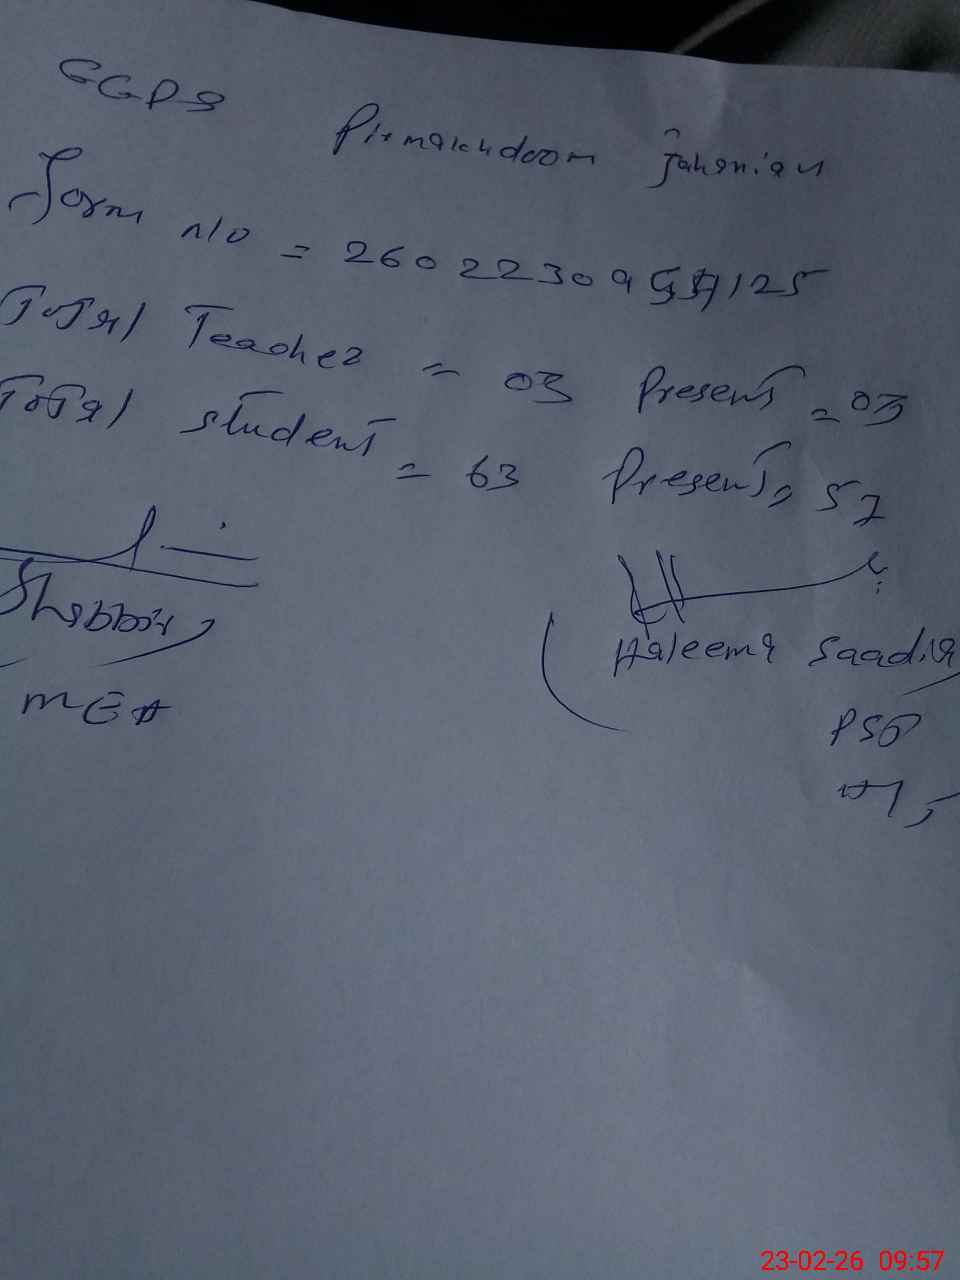 GGPS Pirmakhdoom Jahanian
Form n/o = 260223095 125
Total Teacher = 03 Present = 03
Total student = 63 Present = 57
Shabbir
MEA
Haleema Saadia
PST
23-02-26 09:57